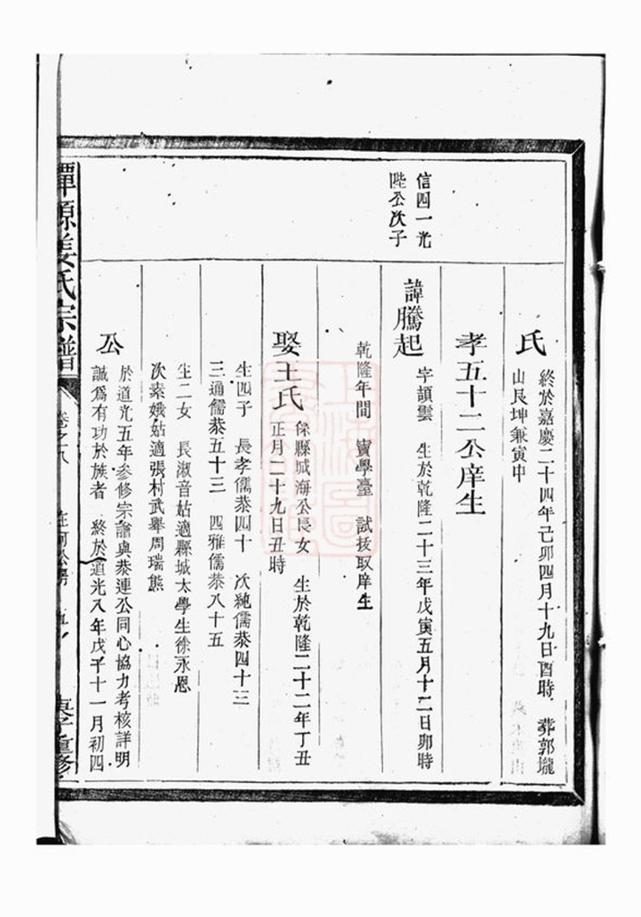 信四一光
陛公次子
氏
終於嘉慶二十四年己卯四月十九日酉時 葬郭壠
山艮坤兼寅申
孝五十二公庠生
諱騰起
字頡雲 生於乾隆二十三年戊寅五月十二日卯時
乾隆年間 竇學臺 試拔取庠生
娶王氏
係縣城海公長女 生於乾隆二十二年丁丑
正月二十九日丑時
生四子 長孝儒恭四十 次純儒恭四十三
三通儒恭五十三 四雅儒恭八十五
生二女 長淑音姑適縣城太學生徐永恩
次素娥姑適張村武舉周瑞熊
公
於道光五年參修宗譜與恭連公同心協力考核詳明
誠爲有功於族者 終於道光八年戊子十一月初四
姜氏宗譜
卷之八
重修